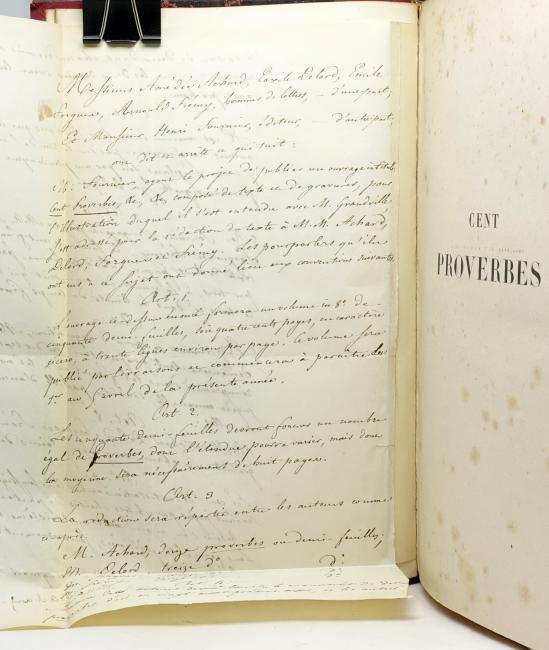 Messieurs Amédée Achard, Taxile Delord, Emile
Forgues, Arnould Frémy, hommes de lettres, — d'une part,
Et Monsieur Henri Fournier, éditeur, — d'autre part,
ont dit et arrêté ce qui suit :
M. Fournier, ayant le projet de publier un ouvrage intitulé
Cent Proverbes, &c, &c, composé de texte et de gravures, pour
l'illustration duquel il s'est entendu avec M. Grandville
s'est adressé pour la rédaction du texte à M.M. Achard,
Delord, Forgues et Frémy. Les pourparlers qu'ils
ont eus à ce sujet ont donné lieu aux conventions suivantes
Art. 1.
L'ouvrage ci-dessus énoncé formera un volume in 8° de
cinquante demi-feuilles, soit quatre cents pages, en caractère
cicéro, à trente lignes environ par page. Ce volume sera
publié par livraisons et commencera à paraître du
1er au avril de la présente année.
Art. 2.
Les cinquante demi-feuilles devront fournir un nombre
égal de Proverbes, dont l'étendue pourra varier, mais dont
la moyenne sera nécessairement de huit pages.
Art. 3
La rédaction sera répartie entre les auteurs comme
ci-après:
M. Achard, douze proverbes ou demi-feuilles;
M. Delord treize d° d°
CENT
PROVERBES